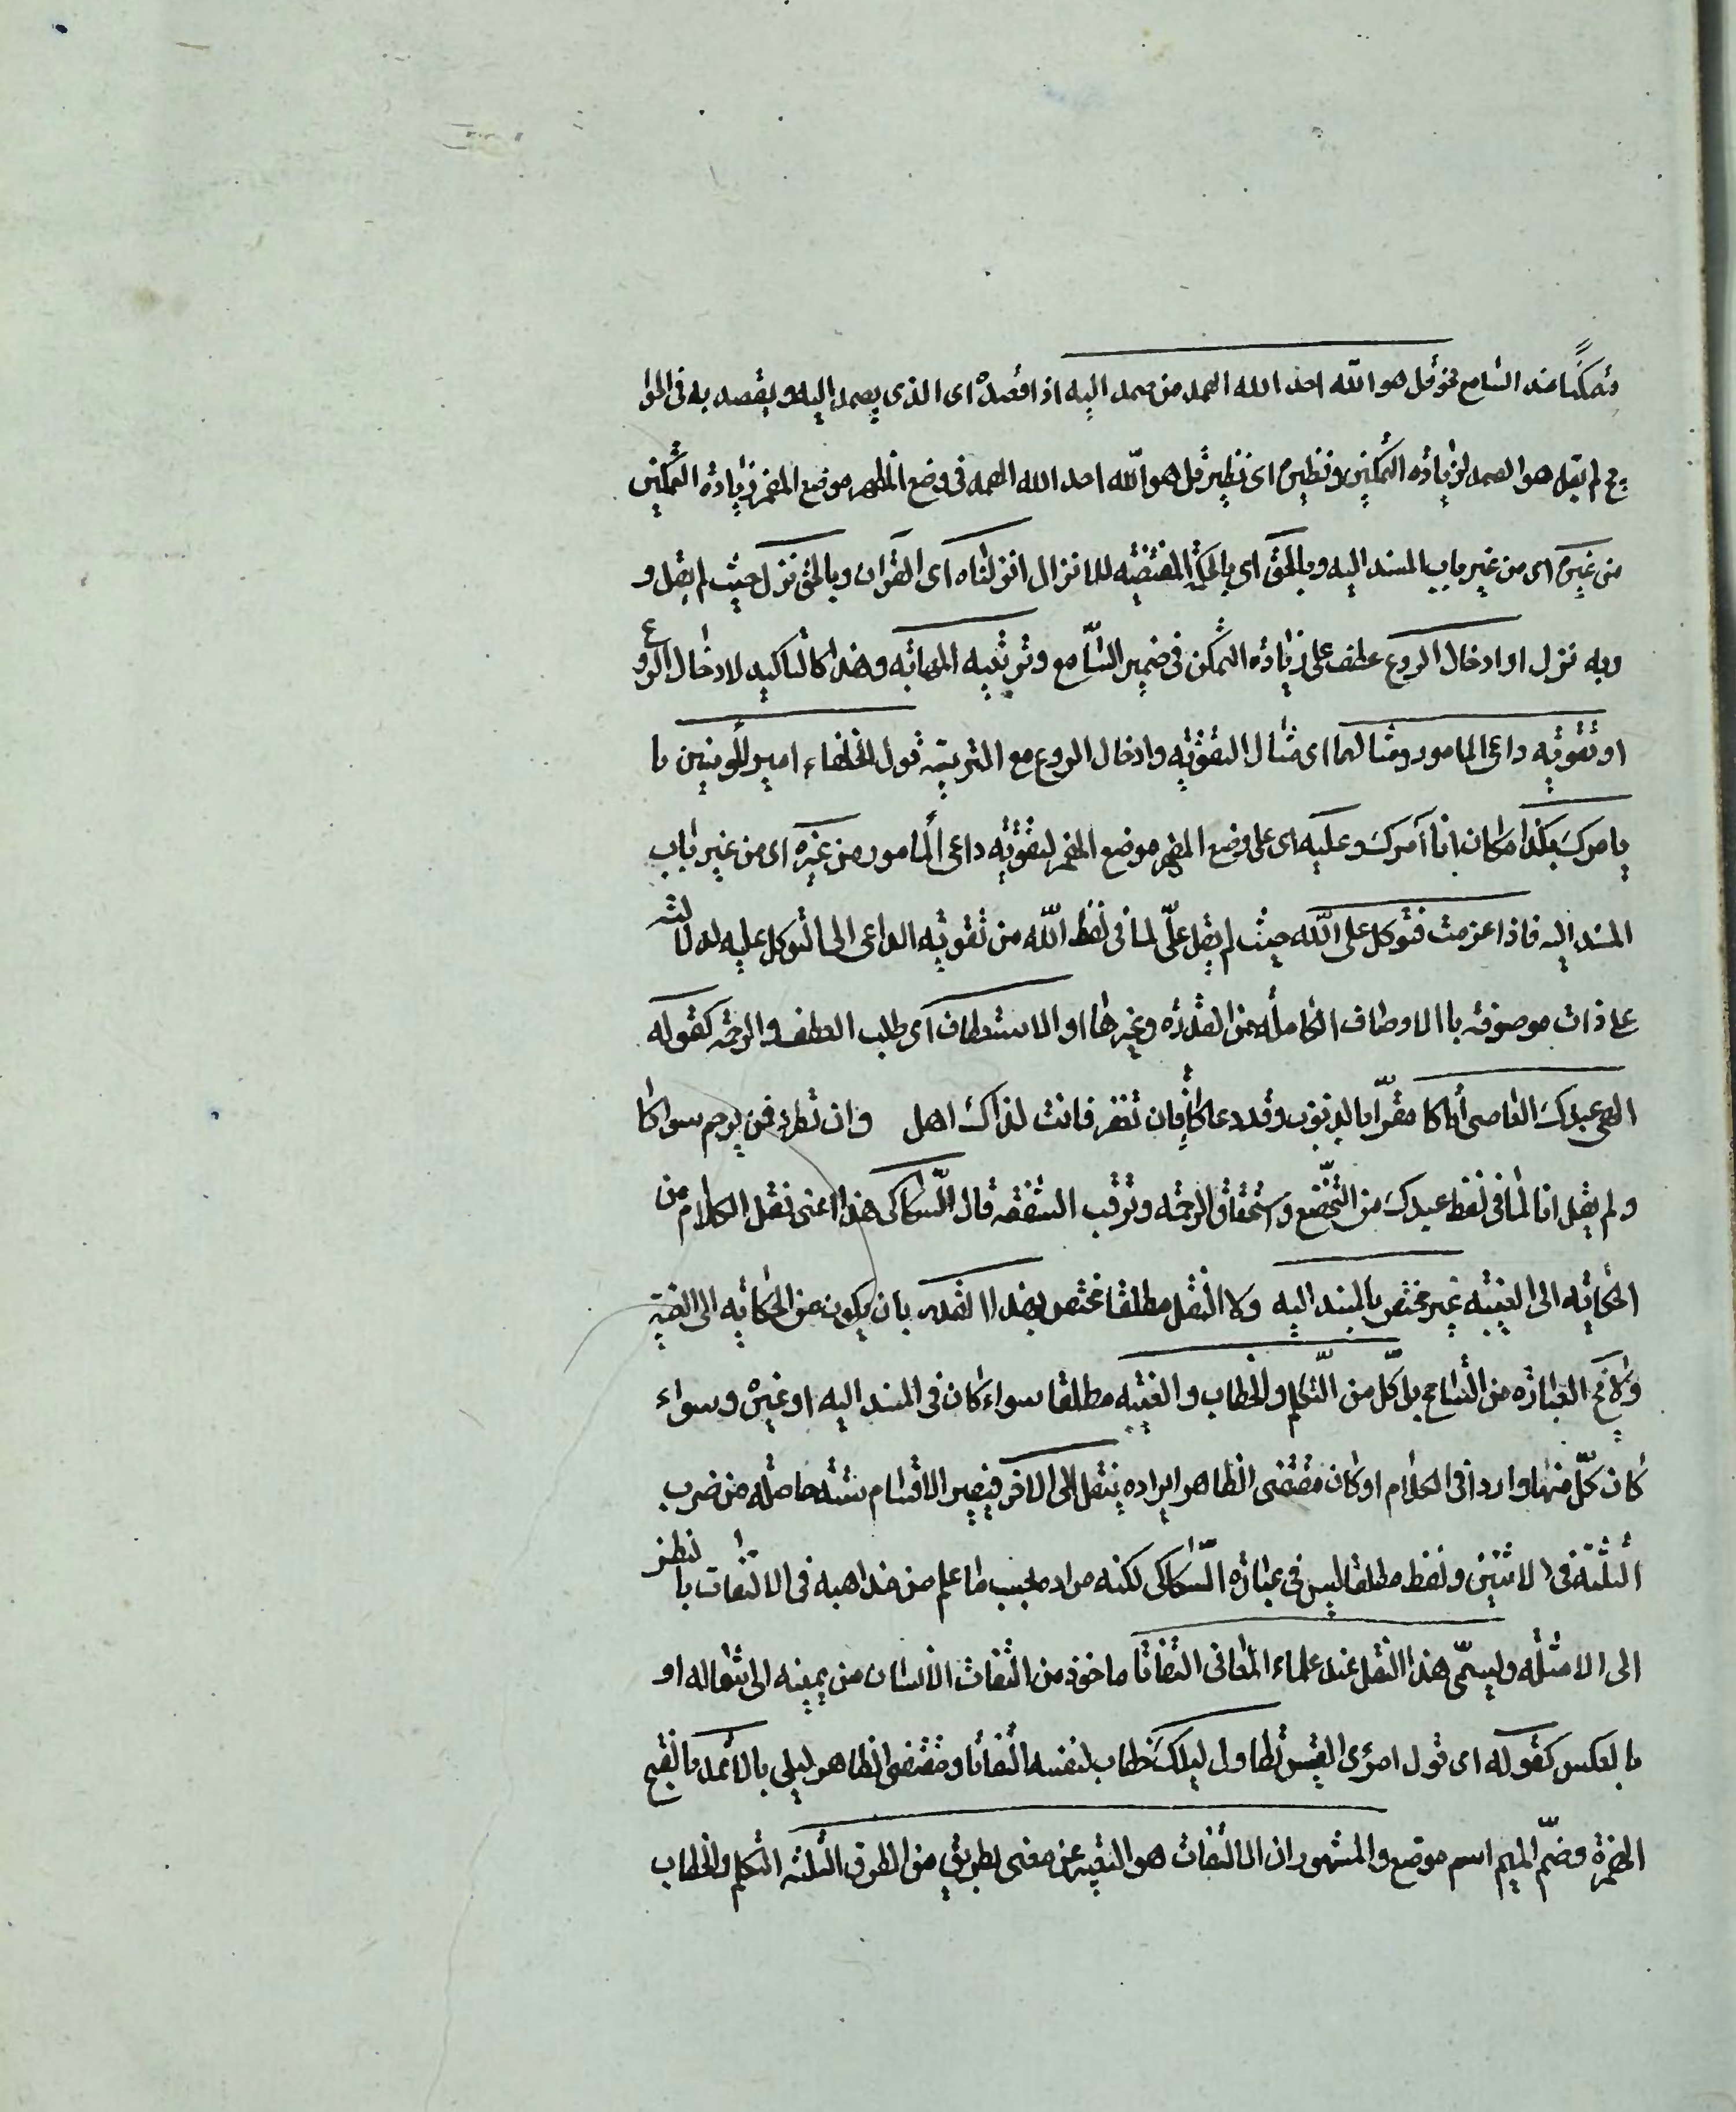 متمكنا عند السامع نحو قل هو الله احد الله الصمد من صمد اليه اذا قصده اى الذى يصمد اليه ويقصد به فى الحوا
ئج لم يقل هو الصمد لزيادة التمكين ونظيره اى نظير قل هو الله احد الله الصمد فى وضع المظهر موضع المضمر لزيادة التمكين
من غيره اى من غير باب المسند اليه وبالحق اى بالحكمة المقتضية للانزال انزلناه اى القرآن وبالحق نزل حيث لم يقل و
وبه نزل او ادخال الروع عطف على زيادة التمكن فى ضمير السامع وتربية المهابة وهذا كالتاكيد لادخال الروع
او تقوية داعى المامور ومثالهما اى مثال التقوية وادخال الروع مع التربية قول الخلفاء امير المومنين يا
يامرك بكذا مكان انا آمرك وعليه اى على وضع المظهر موضع المضمر لتقوية داعى المامور من غيره اى من غير باب
المسند اليه فاذا عزمت فتوكل على الله حيث لم يقل علىّ لما فى لفظ الله من تقوية الداعى الى التوكل عليه لدلالته
على ذات موصوفة باالاوصاف الكاملة من القدرة وغيرها او الاستعطاف اى طلب العطف والرحمة كقوله
الهى عبدك العاصى أتاكا مقرّا بالذنوب وقد دعاكا فان تغفر فانت لذاك اهل وان تطرد فمن يرحم سواكا
ولم يقل انا لما فى لفظ عبدك من التخضّع واستحقاق الرحمة وترقب الشفقة قال السّكاكى هذا اعنى نقل الكلام من
الحكاية الى الغيبة غير مختص بالمسند اليه ولا النقل مطلقا مختص بهذا القدر بان يكون من الحكاية الى الغيبة
ولا تخ العبارة من التسامح بل كلّ من التّكلم والخطاب والغيبة مطلقا سواء كان فى المسند اليه او غيره وسواء
كان كلّ منها واردا فى الكلام او كان مقتضى الظاهر ايراده ينتقل الى الاخر فيصير الاقسام ستة حاصلة من ضرب
الثلثة فى الاثنين ولفظ مطلقا ليس فى عبارة السّكاكى لكنه مراده بحسب ما علم من مذاهبه فى الالتفات بالنظر
الى الامثلة ويسمّى هذا النقل عند علماء المعانى التفاتا ماخوذ من التفات الانسان من يمينه الى شماله او
بالعكس كقوله اى قول امرئ القيس تطاول ليلك خطاب لنفسه التفاتا ومقتضى الظاهر ليلى بالاثمد بالفتح
الهمزة وضمّ الميم اسم موضع والمشهور ان الالتفات هو التعبير عن معنى بطريق من الطرق الثلثة التكلم والخطاب